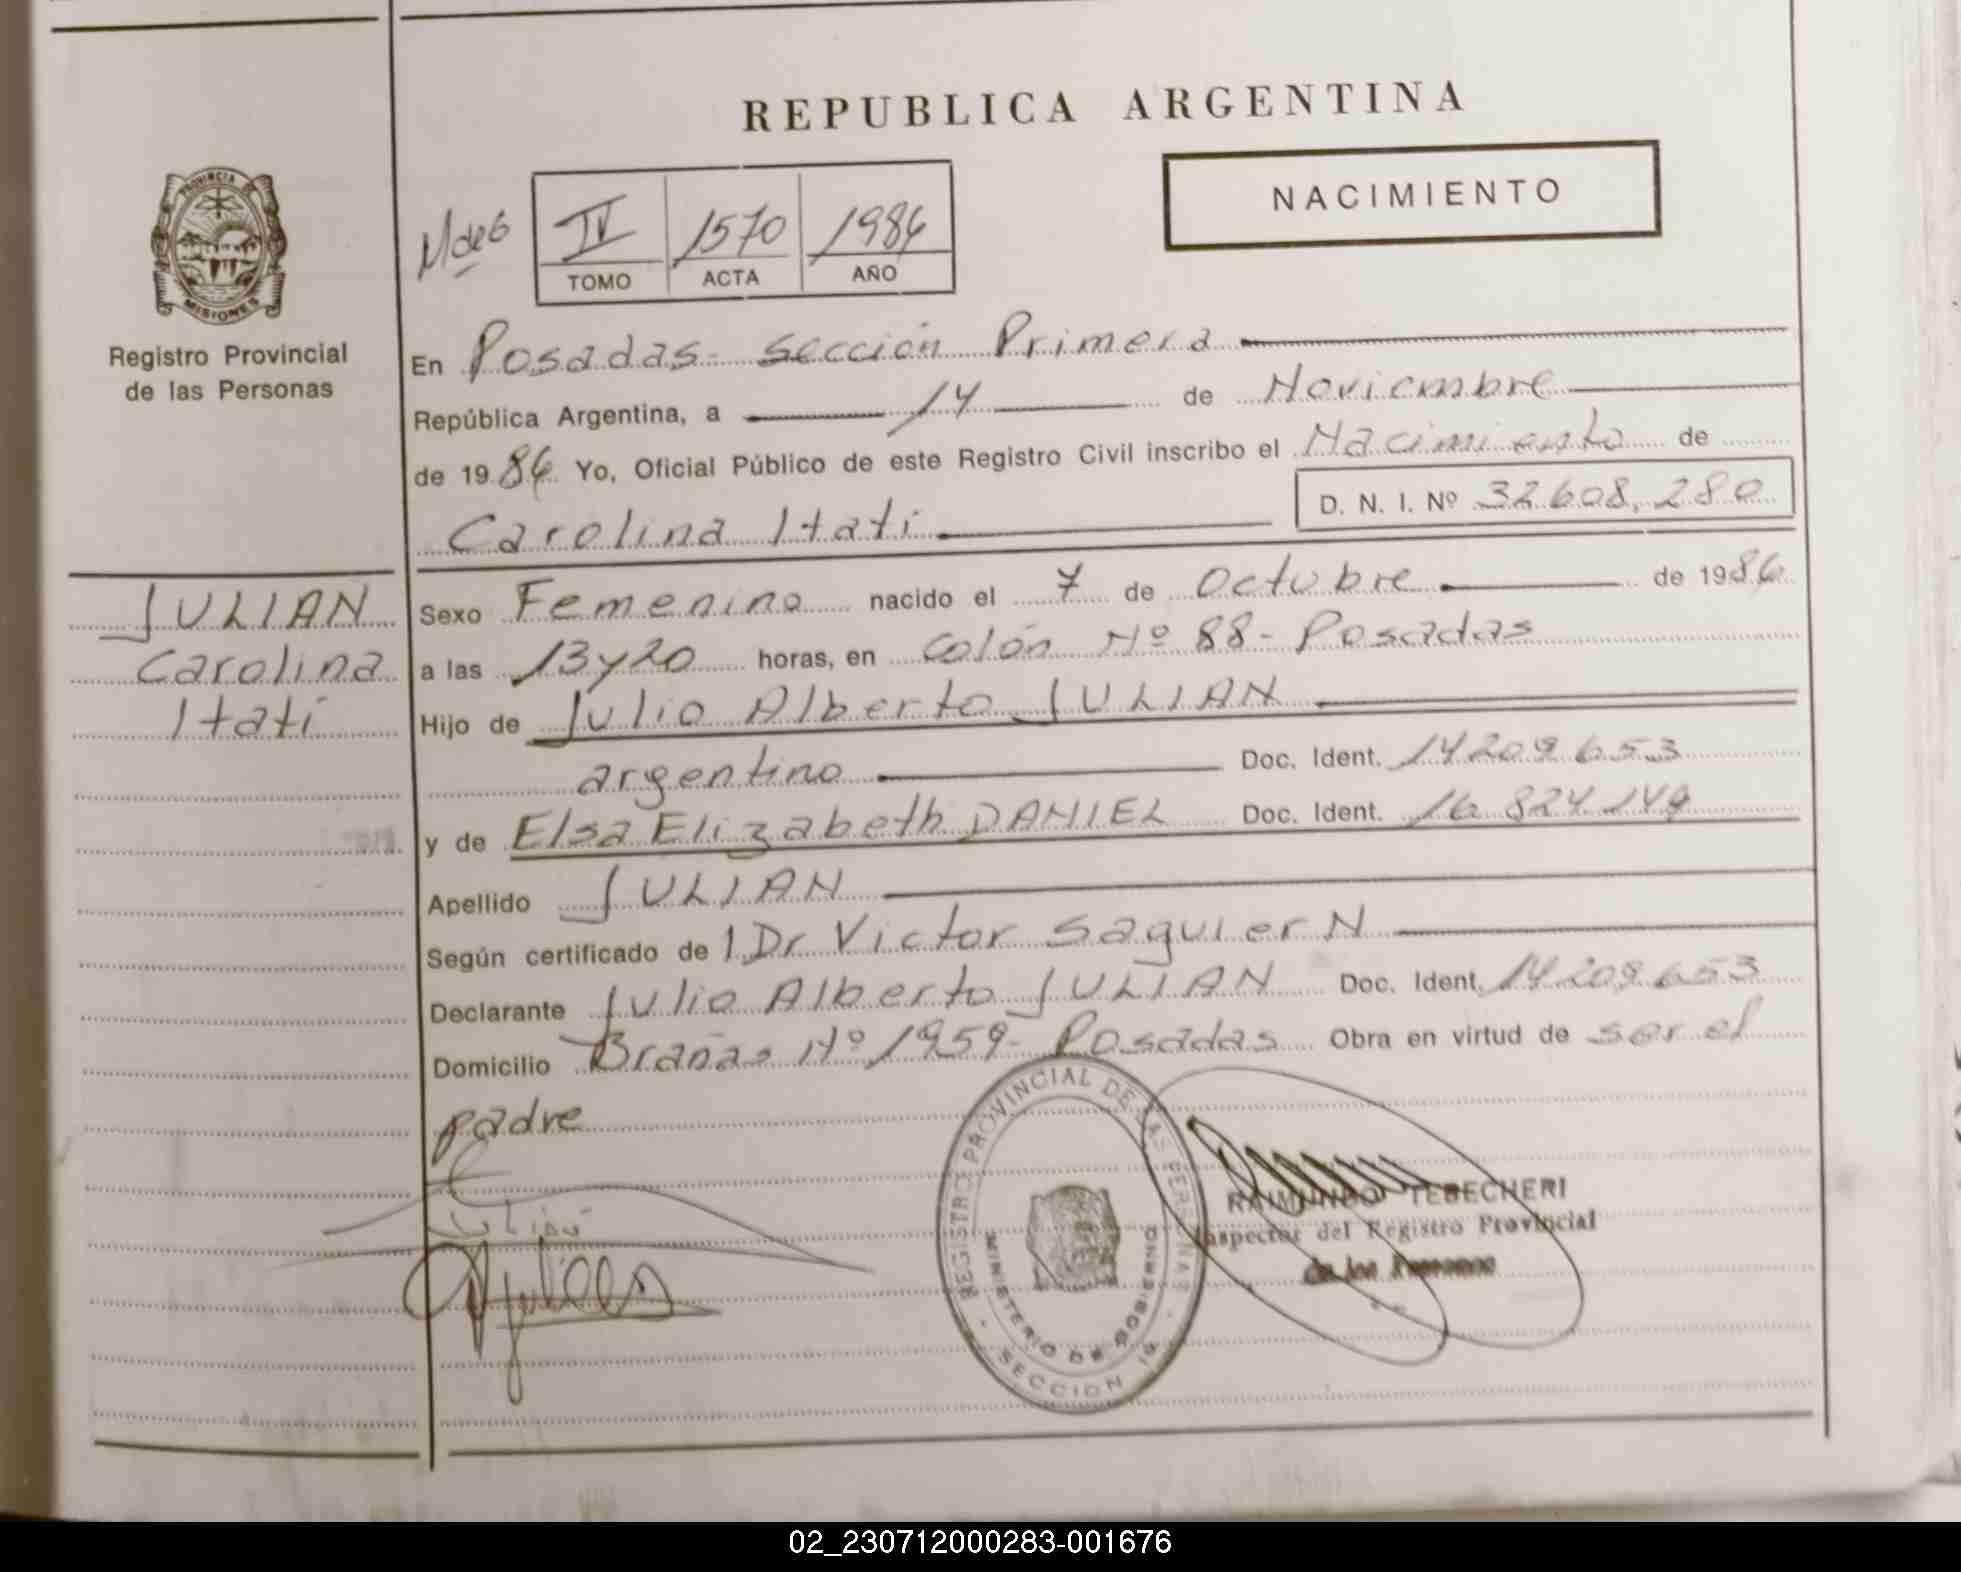 REPUBLICA ARGENTINA
NACIMIENTO
IV 1570 1986
TOMO ACTA AÑO
PROVINCIA DE
MISIONES
Registro Provincial
de las Personas
En Posadas - sección Primera
República Argentina, a 14 de Noviembre
de 1986 Yo, Oficial Público de este Registro Civil inscribo el Nacimiento de
D. N. I. Nº 32.608.280
Carolina Itatí
JULIAN
Carolina
Itatí
Sexo Femenino nacido el 7 de Octubre de 1986
a las 13 y 20 horas, en Colón Nº 88 - Posadas
Hijo de Julio Alberto JULIAN
argentino Doc. Ident. 14.209.653
y de Elsa Elizabeth DANIEL Doc. Ident. 16.824.149
Apellido JULIAN
Según certificado de l Dr Victor Saguier N
Declarante Julio Alberto JULIAN Doc. Ident. 14.209.653
Domicilio Brañas Nº 1959 - Posadas Obra en virtud de ser el
padre
REGISTRO PROVINCIAL DE LAS PERSONAS
MINISTERIO DE GOBIERNO
SECCION 1a
RAIMUNDO TEBECHERI
Inspector del Registro Provincial
de las Personas
02_230712000283-001676